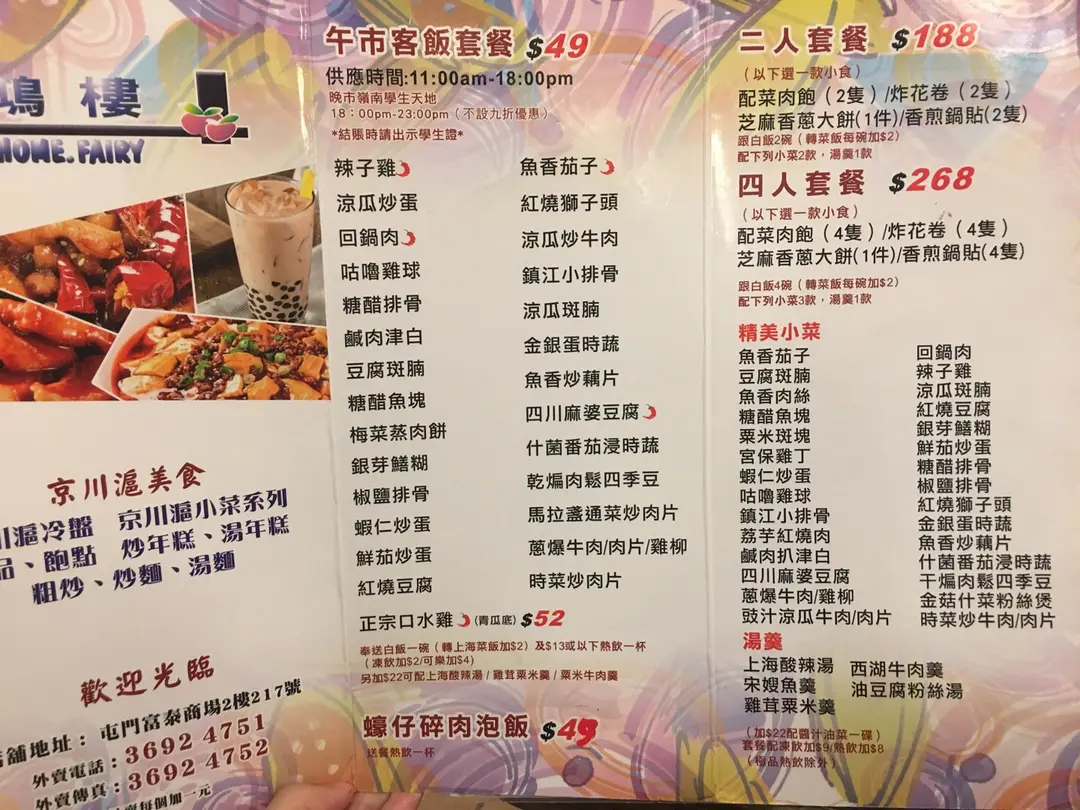 鳴樓
HOME.FAIRY
京川滬美食
川滬冷盤 京川滬小菜系列
品、飽點 炒年糕、湯年糕
粗炒、炒麵、湯麵
歡迎光臨
店舖地址：屯門富泰商場2樓217號
外賣電話：3692 4751
外賣傳真：3692 4752
賣每個加一元
午市客飯套餐 $49
供應時間:11:00am-18:00pm
晚市嶺南學生天地
18：00pm-23:00pm（不設九折優惠）
*結賬時請出示學生證*
辣子雞 魚香茄子
涼瓜炒蛋 紅燒獅子頭
回鍋肉 涼瓜炒牛肉
咕嚕雞球 鎮江小排骨
糖醋排骨 涼瓜斑腩
鹹肉津白 金銀蛋時蔬
豆腐斑腩 魚香炒藕片
糖醋魚塊 四川麻婆豆腐
梅菜蒸肉餅 什菌番茄浸時蔬
銀芽鱔糊 乾煸肉鬆四季豆
椒鹽排骨 馬拉盞通菜炒肉片
蝦仁炒蛋 蔥爆牛肉/肉片/雞柳
鮮茄炒蛋 時菜炒肉片
紅燒豆腐
正宗口水雞(青瓜底) $52
奉送白飯一碗（轉上海菜飯加$2）及$13或以下熱飲一杯
（凍飲加$2/可樂加$4）
另加$22可配上海酸辣湯/雞茸粟米羹/粟米牛肉羹
蠔仔碎肉泡飯 $49
送餐熱飲一杯
二人套餐 $188
（以下選一款小食）
配菜肉飽（2隻）/炸花卷（2隻）
芝麻香蔥大餅(1件)/香煎鍋貼(2隻)
跟白飯2碗（轉菜飯每碗加$2）
配下列小菜2款，湯羹1款
四人套餐 $268
（以下選一款小食）
配菜肉飽（4隻）/炸花卷（4隻）
芝麻香蔥大餅(1件)/香煎鍋貼(4隻)
跟白飯4碗（轉菜飯每碗加$2）
配下列小菜3款，湯羹1款
精美小菜
魚香茄子 回鍋肉
豆腐斑腩 辣子雞
魚香肉絲 涼瓜斑腩
糖醋魚塊 紅燒豆腐
粟米斑塊 銀芽鱔糊
宮保雞丁 鮮茄炒蛋
蝦仁炒蛋 糖醋排骨
咕嚕雞球 椒鹽排骨
鎮江小排骨 紅燒獅子頭
荔芋紅燒肉 金銀蛋時蔬
鹹肉扒津白 魚香炒藕片
四川麻婆豆腐 什菌番茄浸時蔬
蔥爆牛肉/雞柳 干煸肉鬆四季豆
豉汁涼瓜牛肉/肉片 金菇什菜粉絲煲
時菜炒牛肉/肉片
湯羹
上海酸辣湯 西湖牛肉羹
宋嫂魚羹 油豆腐粉絲湯
雞茸粟米羹
（加$22配醬汁油菜一碟）
套餐配凍飲加$9/熱飲加$8
（極品熱飲除外）